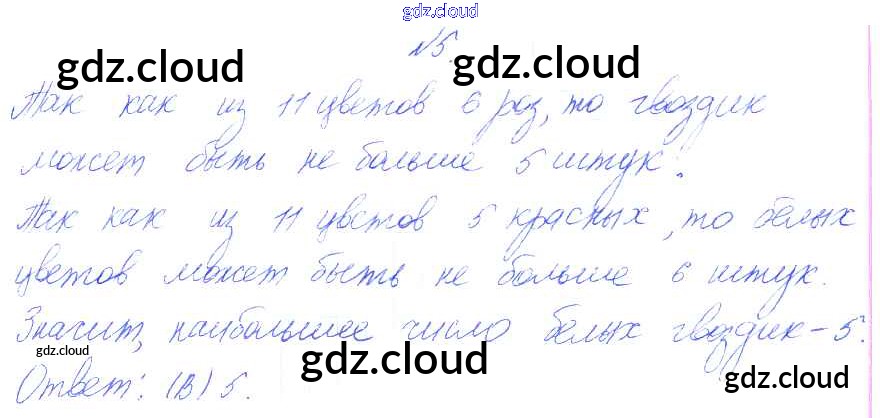 gdz.cloud
№5.
gdz.cloud gdz.cloud
Так как из 11 цветов 6 роз, то гвоздик
может быть не больше 5 штук.
Так как из 11 цветов 5 красных, то белых
цветов может быть не больше 6 штук.
Значит, наибольшее число белых гвоздик – 5.
gdz.cloud gdz.cloud gdz.cloud
Ответ: (В) 5.